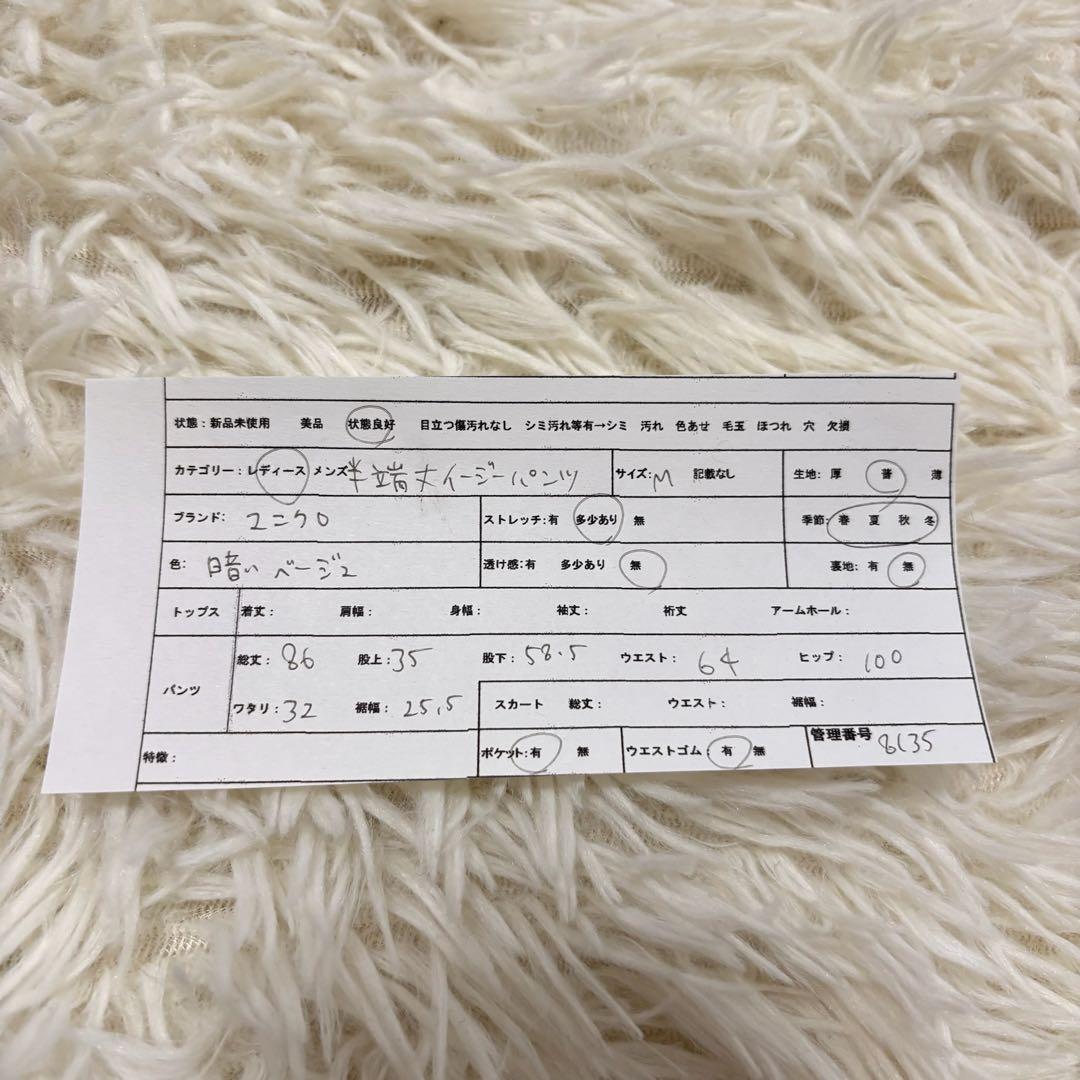 状態：新品未使用 美品 状態良好 目立つ傷汚れなし シミ汚れ等有→シミ 汚れ 色あせ 毛玉 ほつれ 穴 欠損
カテゴリー：レディース メンズ 半端丈イージーパンツ サイズ：M 記載なし 生地：厚 普 薄
ブランド：ユニクロ ストレッチ：有 多少あり 無 季節：春 夏 秋 冬
色：暗いベージュ 透け感：有 多少あり 無 裏地：有 無
トップス 着丈： 肩幅： 身幅： 袖丈： 裄丈 アームホール：
パンツ 総丈：86 股上：35 股下：58.5 ウエスト：64 ヒップ：100
ワタリ：32 裾幅：25.5 スカート 総丈： ウエスト： 裾幅：
特徴： ポケット：有 無 ウエストゴム：有 無 管理番号